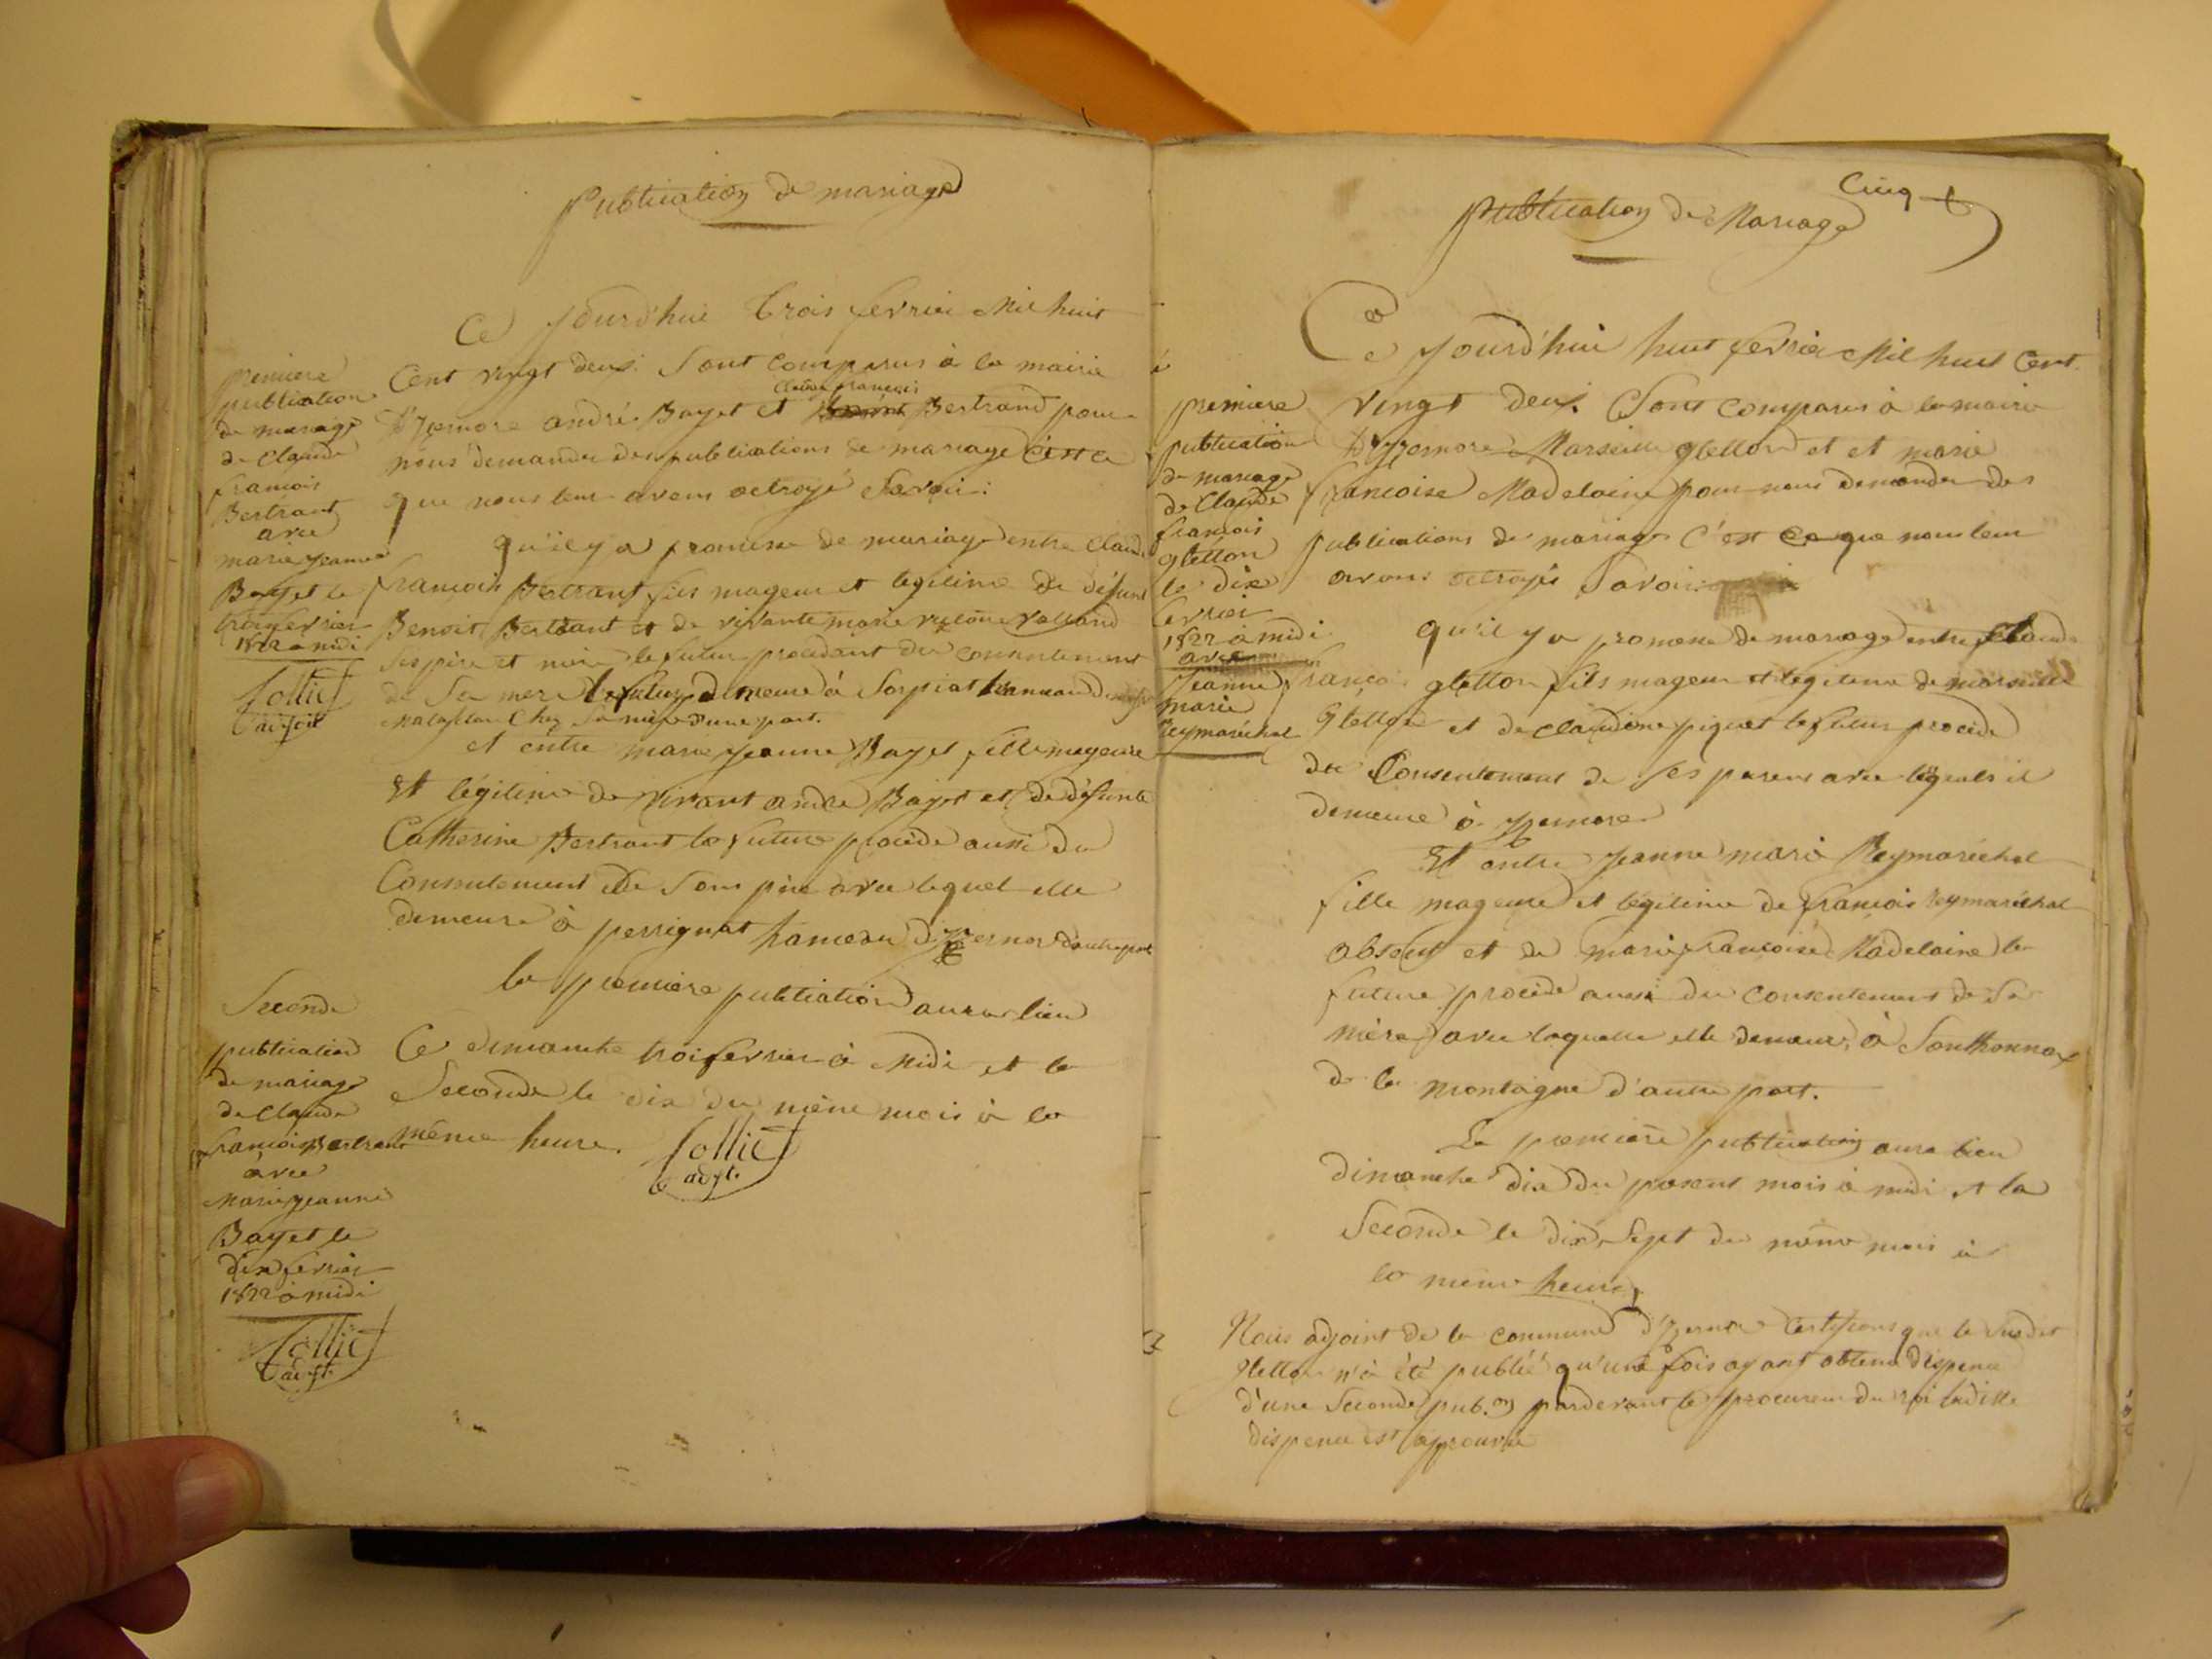 Publication de mariage
Ce Jourd'hui trois fevrier Mil huit
Cent vingt deux. Sont comparus à la mairie
Claude françois
d'Izernore andré Bayet et Bertrand pour
nous demander des publications de mariage C'est ce
que nous leur avons octroyé Savoir:
qu'il y a promesse de mariage entre Claude
françois Bertrant fils mageur et legitime de défunt
Benoit Bertrant et de vivante marie
Ses père et mère le futur procédant du consentement
de Sa mere le futur demeure à Sorpiat
chez Sa mère d'une part.
et entre marie Jeanne Bayet fille mageure
Et légitime de Vivant andre Bayet et de défunte
Catherine Bertrant la future procède aussi du
Consentement de Son père avec lequel elle
demeure à perrignat hameau d'Izernore d'autre part
la premiere publication aura lieu
Ce dimanche trois fevrier à Midi et la
Seconde le dix du même mois à la
même heure. Tollict
adjt.
premiere
publication
de mariage
de Claude
francois
Bertrant
avec
marie Jeanne
Bayet le
trois fevrier
1822 à midi
Tollict
adjoit
Seconde
publication
de mariage
de Claude
francois Bertrant
avec
Marie Jeanne
Bayet le
dix fevrier
1822 à midi
Tollict
adjt.
Cinq
Publication de Mariage
Ce Jourd'hui huit fevrier Mil huit Cent
vingt deux. Sont comparus à la mairie
d'Izernore Marseille gletton et et marie
francoise Madelaine pour nous demander des
publications de mariage C'est ce que nous leur
avons octroyés Savoir:
qu'il y a promesse de mariage entre Claude
françois gletton fils mageur et légitime de marseille
Gletton et de claudine piquet le futur procède
du Consentement de Ses parens avec lesquels il
demeure à Izernore
Et entre Jeanne marie Reymaréchal
fille mageure et légitime de francois reymaréchal
absent et de marie francoise Madelaine la
future procède aussi du consentement de Sa
mère avec laquelle elle demeure à Sonthonnax
de la montagne d'autre part.
La premiere publication aura lieu
dimanche dix du present mois à midi et la
Seconde le dix Sept du même mois à
la même heure,
Nous adjoint de la commune d'Izernore Certifions que le Susdit
Gletton n'à été publié qu'une fois ayant obtenu dispense
d'une Seconde pub.on pardevant le procureur du roi ladite
dispense est approuvée
premiere
publication
de mariage
de Claude
francois
gletton
le dix
fevrier
1822 à midi
avec
Jeanne
marie
reymaréchal